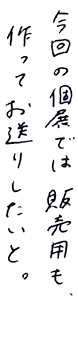 今回の個展では販売用も、
作ってお送りしたいと。